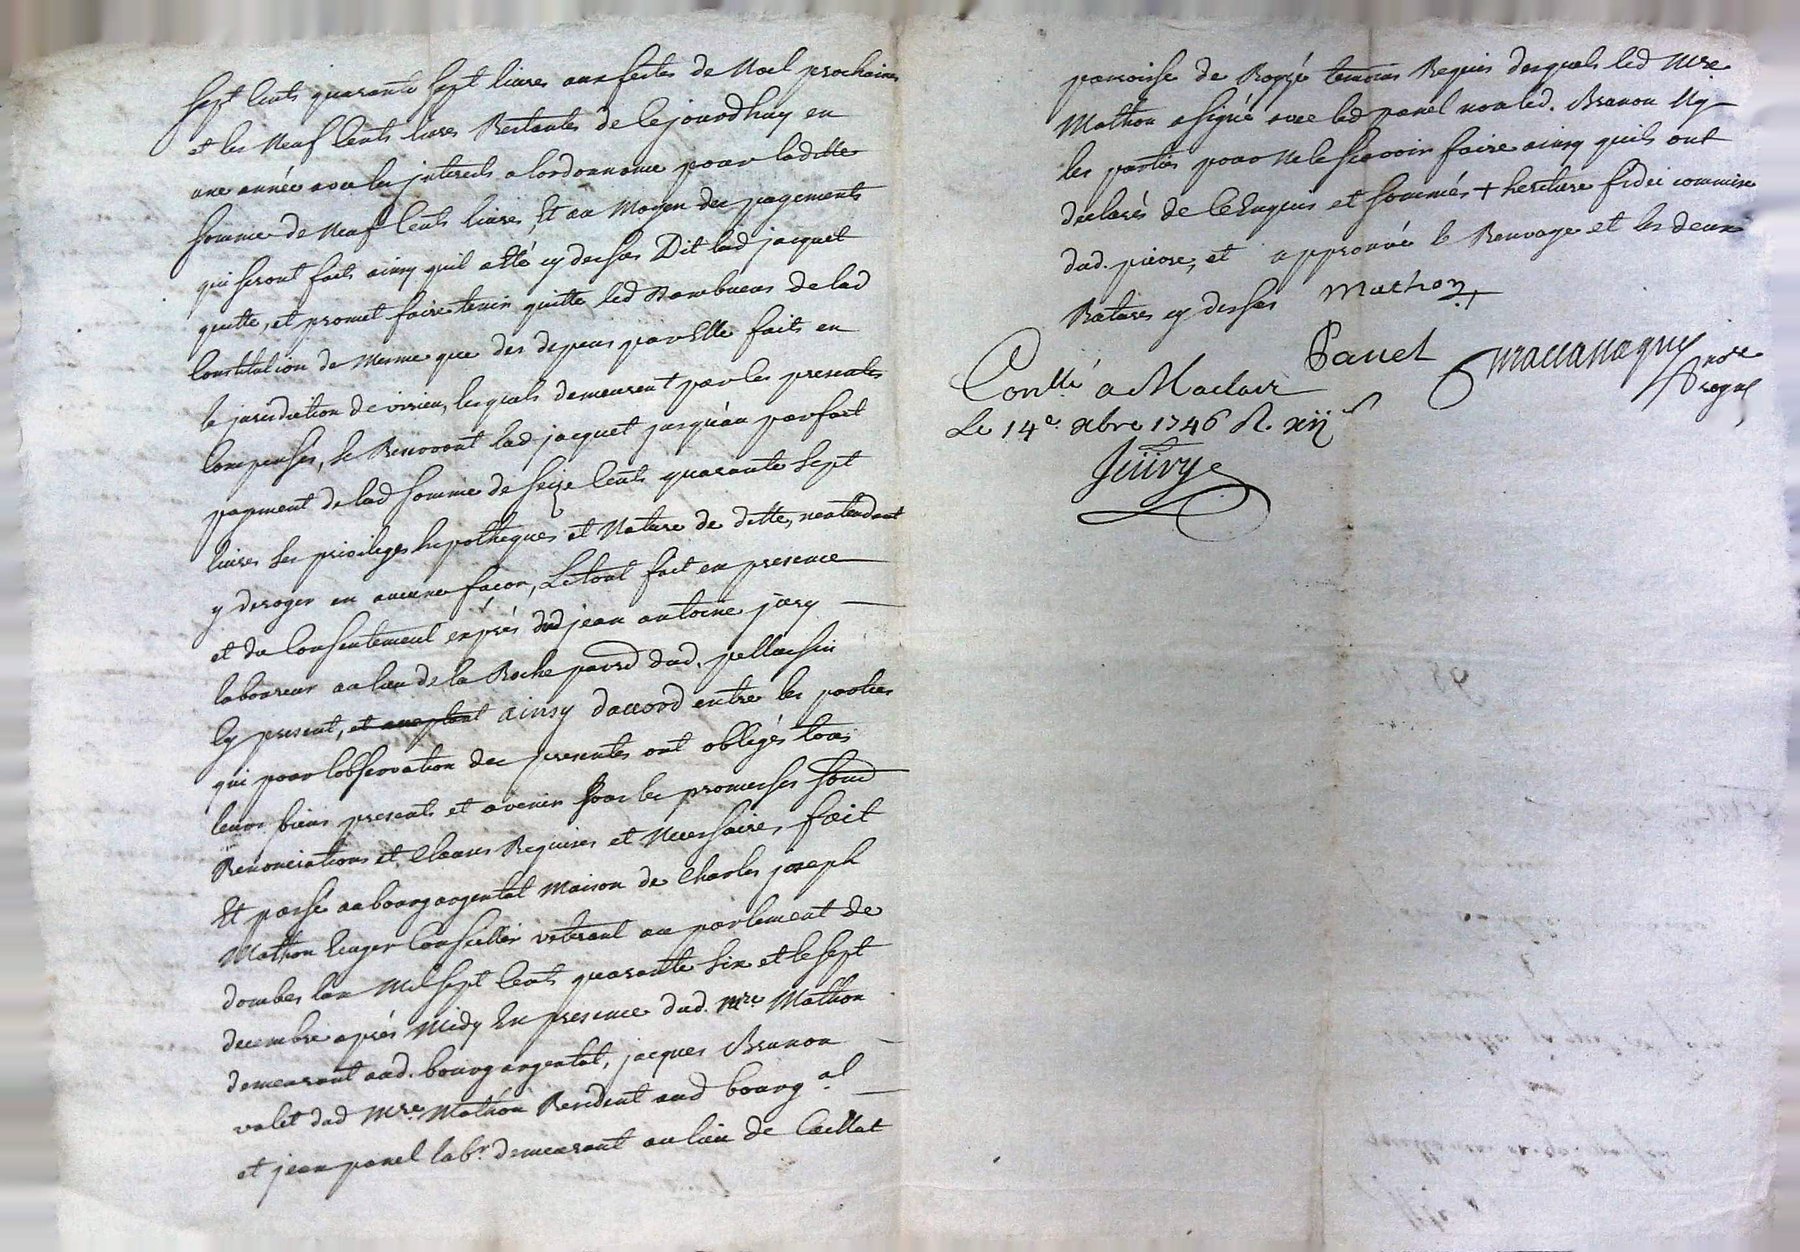 sept cents quarante sept livres aux festes de Noel prochaines
et les Neuf Cents livres Restantes de Cejourdhuy en
une année avec les jnterests a lordonnance pour laditte
somme de Neuf Cents livres, Et au Moyen des payements
qui seront faits ainsy quil a Esté cy dessus Dit lad jacquet
quitte, et promet faire tenir quitte led de lad
Constitution de Mesme que des depens par Elle faits en
la jurisdiction de virieu, lesquels demeurent par les presentes
Compensés, se Reservant lad jacquet jusqu'au parfait
payment de lad somme de seize Cents quarante sept
livres ses privileges hipotheques et Nature de dette, nentendant
y deroger en aucune façon, Le tout fait en presence
et du Consentement exprés dud jean antoine jury
laboureur au lieu de la Roche parr. dud. pellussin
Cy present, et acceptant ainsy daccord entre les parties
qui pour lobservation des presentes ont obligés tous
leurs biens presents et avenir sous les promesses soumd
Renonciations et Clauses Requises et Necessaires, fait
Et passé au bourgargental Maison de Charles joseph
Mathon Ecuyer Conseiller veterant au parlement de
dombes lan Mil sept Cents quarante six et le sept
decembre aprés Midy En presence dud. Mre Mathon
demeurant aud. bourgargental, jacques Brunon
valet dud Mre Mathon Resident aud bourg al
et jean panel labr. demeurant au lieu de Caillat
parroisse de temoins Requis desquels led Mre
Mathon a signé avec led panel non led. Brunon Ny
les parties pour Ne le sçavoir faire ainsy quils ont
declarés de Ce Enquis et sommés + heritiere fidei commise
dud. et approuvé le Renvoye et les deux
Ratures cy dessus Mathon
Panel
Conllé a Maclas
Le 14e. xbre 1746 R. xij s